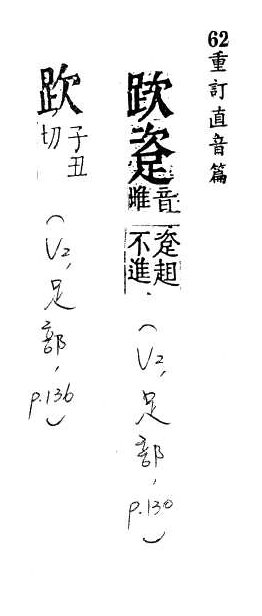 62重訂直音篇
音雎
趄不進
(V2,足部,p.130)
子丑切
(V2,足部,p.136)